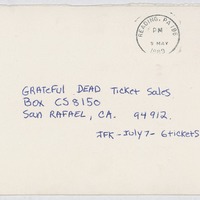 READING, PA 196
PM
GRATEFUL DEAD Ticket Sales
Box CS 8150
San RAFAEL, CA. 94912.
JFK - July 7 - 6 tickets